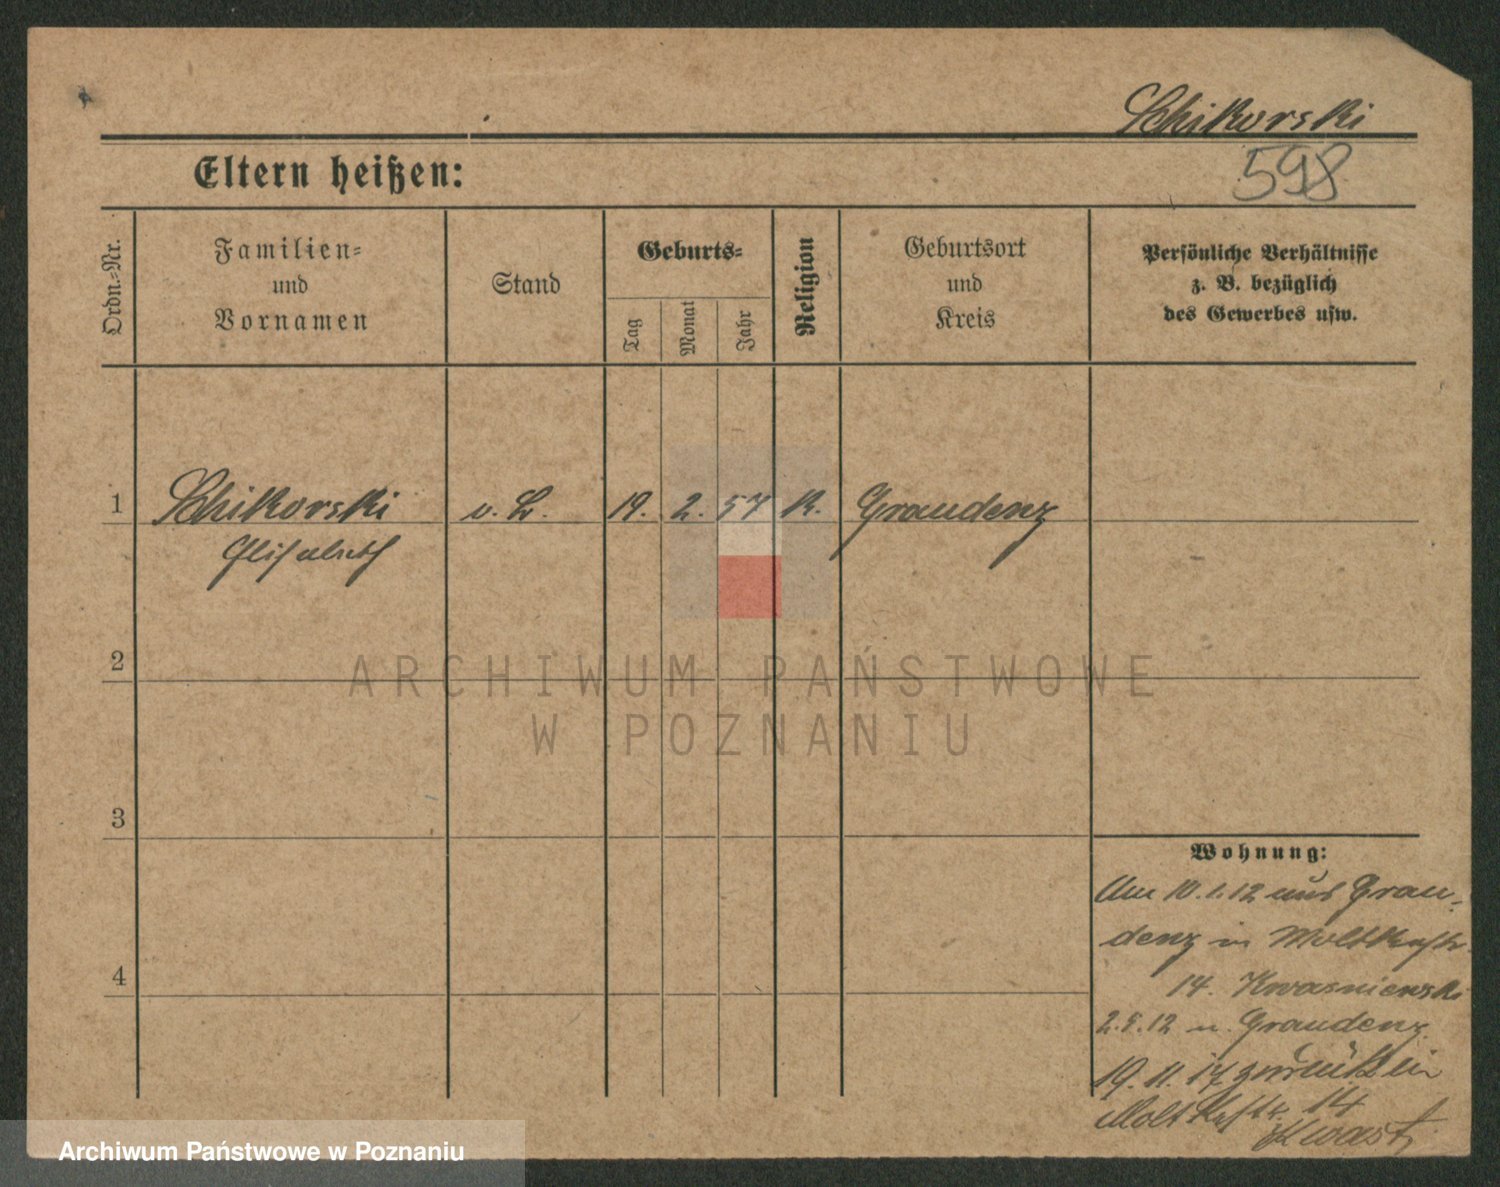 Schikorski
598
Eltern heißen:
Ordn.-Nr.
Familien-
und
Vornamen
Stand
Geburts-
Tag
Monat
Jahr
Religion
Geburtsort
und
Kreis
Persönliche Verhältnisse
z. B. bezüglich
des Gewerbes usw.
1 Schikorski o. B. 19. 2. 57 K. Graudenz
Elisabeth
2
3
4
Wohnung:
Am 10.1.12 aus Grau-
denz in Moltkestr.
14. Kwasniewski
2.5.12 n. Graudenz
19.11.17 zurück in
Moltkestr. 14
ARCHIWUM PAŃSTWOWE
W POZNANIU
Archiwum Państwowe w Poznaniu